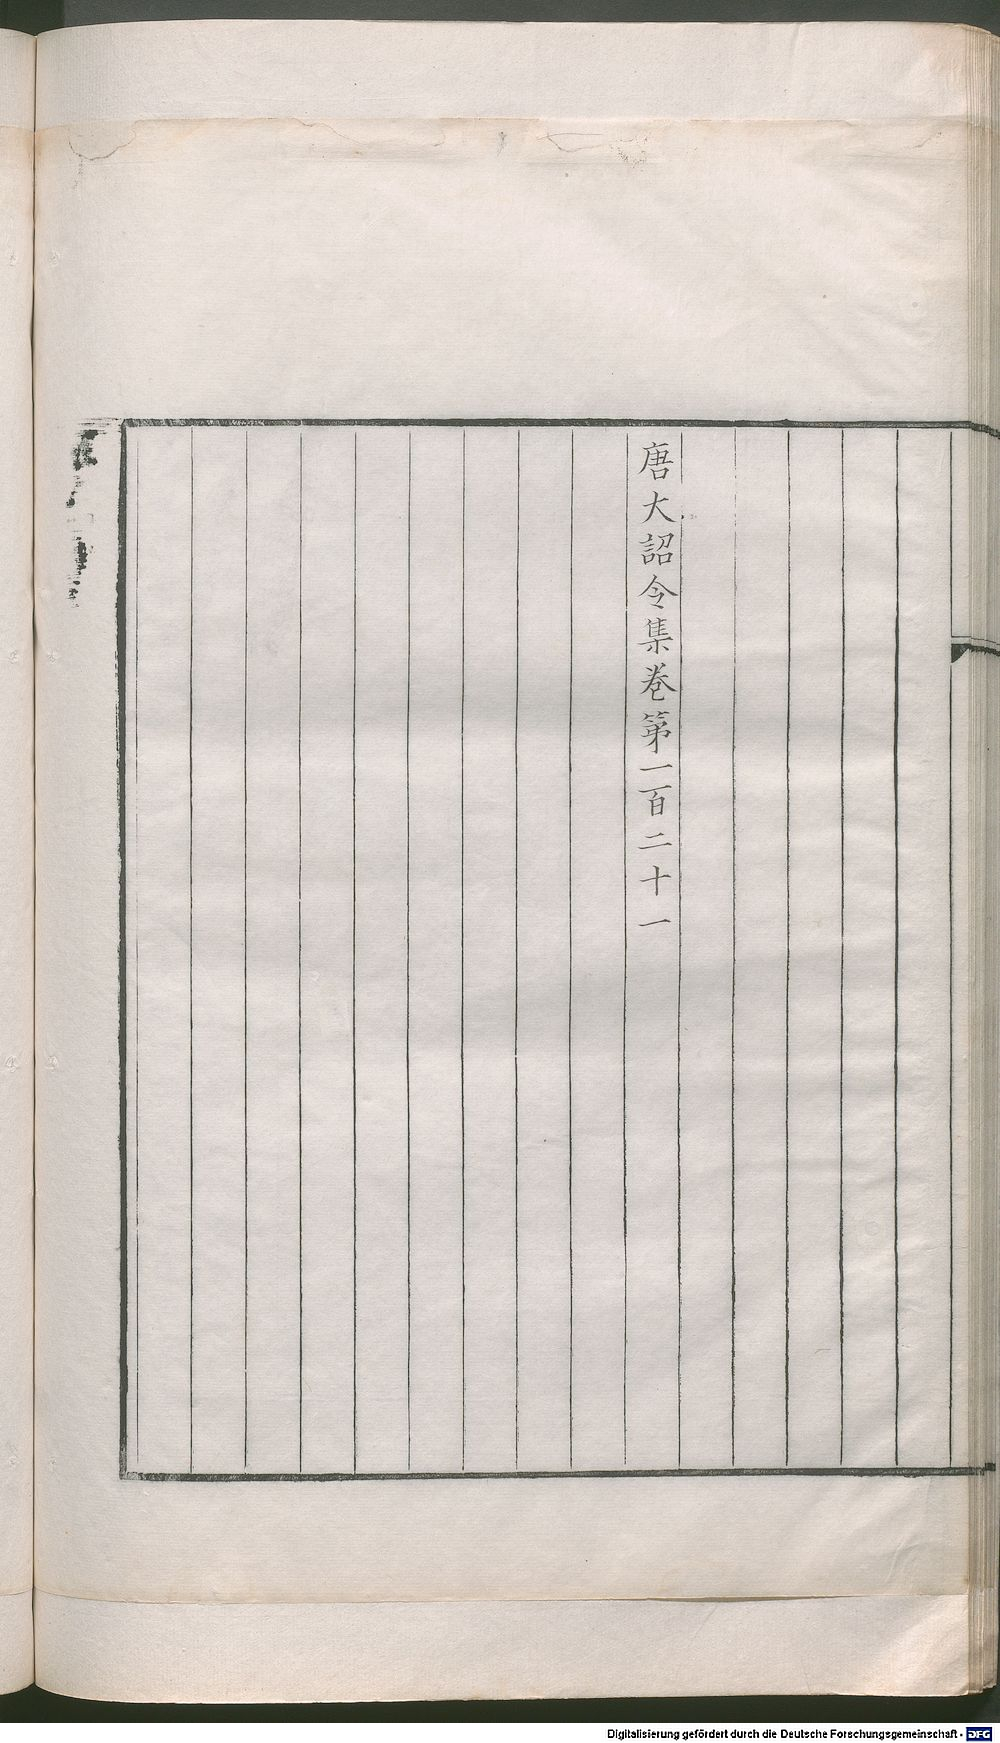 唐大詔令集卷第一百二十一
Digitalisierung gefördert durch die Deutsche Forschungsgemeinschaft - DFG